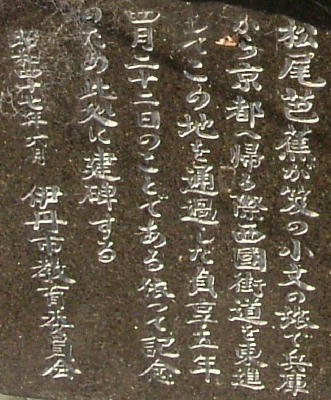 松尾芭蕉が笈の小文の旅で兵庫
から京都へ帰る際西國街道を東進
してこの地を通過した貞享五年
四月二十二日のことである依って記念
のため此処に建碑する
昭和四十七年六月 伊丹市教育委員会